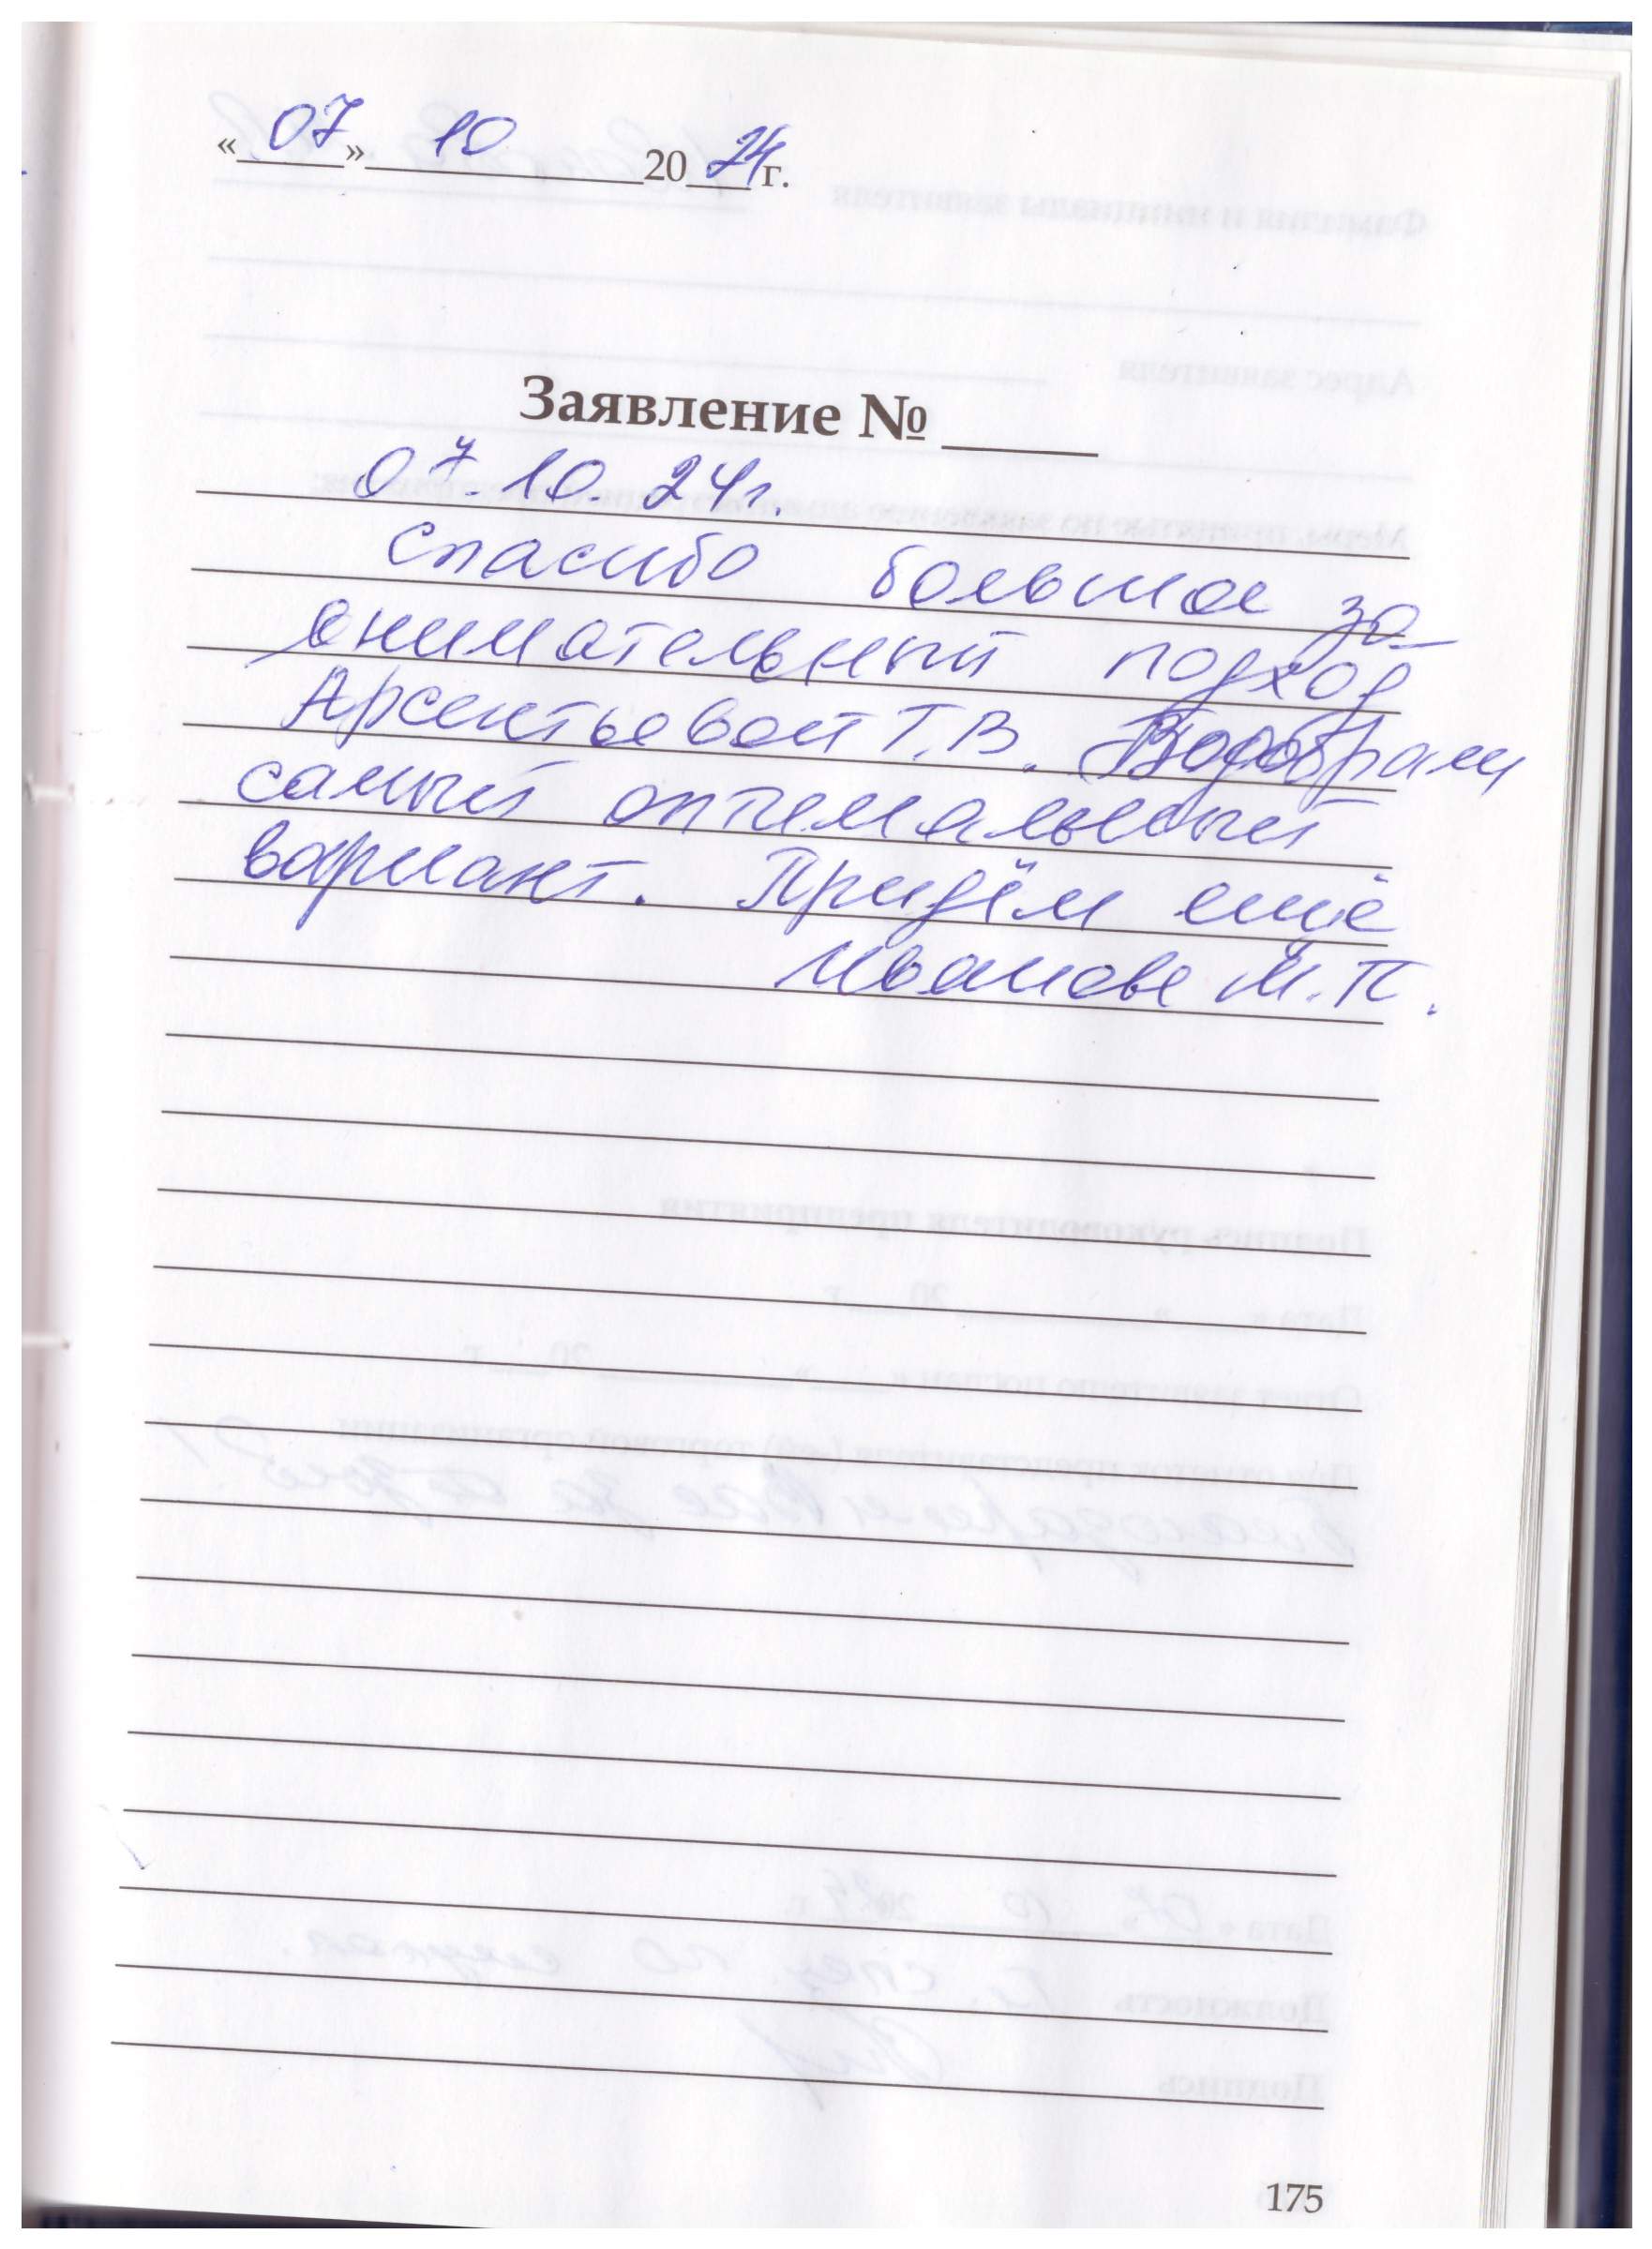 «07» 10 2024 г.
Заявление №
07.10.24г.
Спасибо большое за
внимательный подход
Арсентьевой Т.В. Подобрали
самый оптимальный
вариант. Придём ещё
М.П.
175